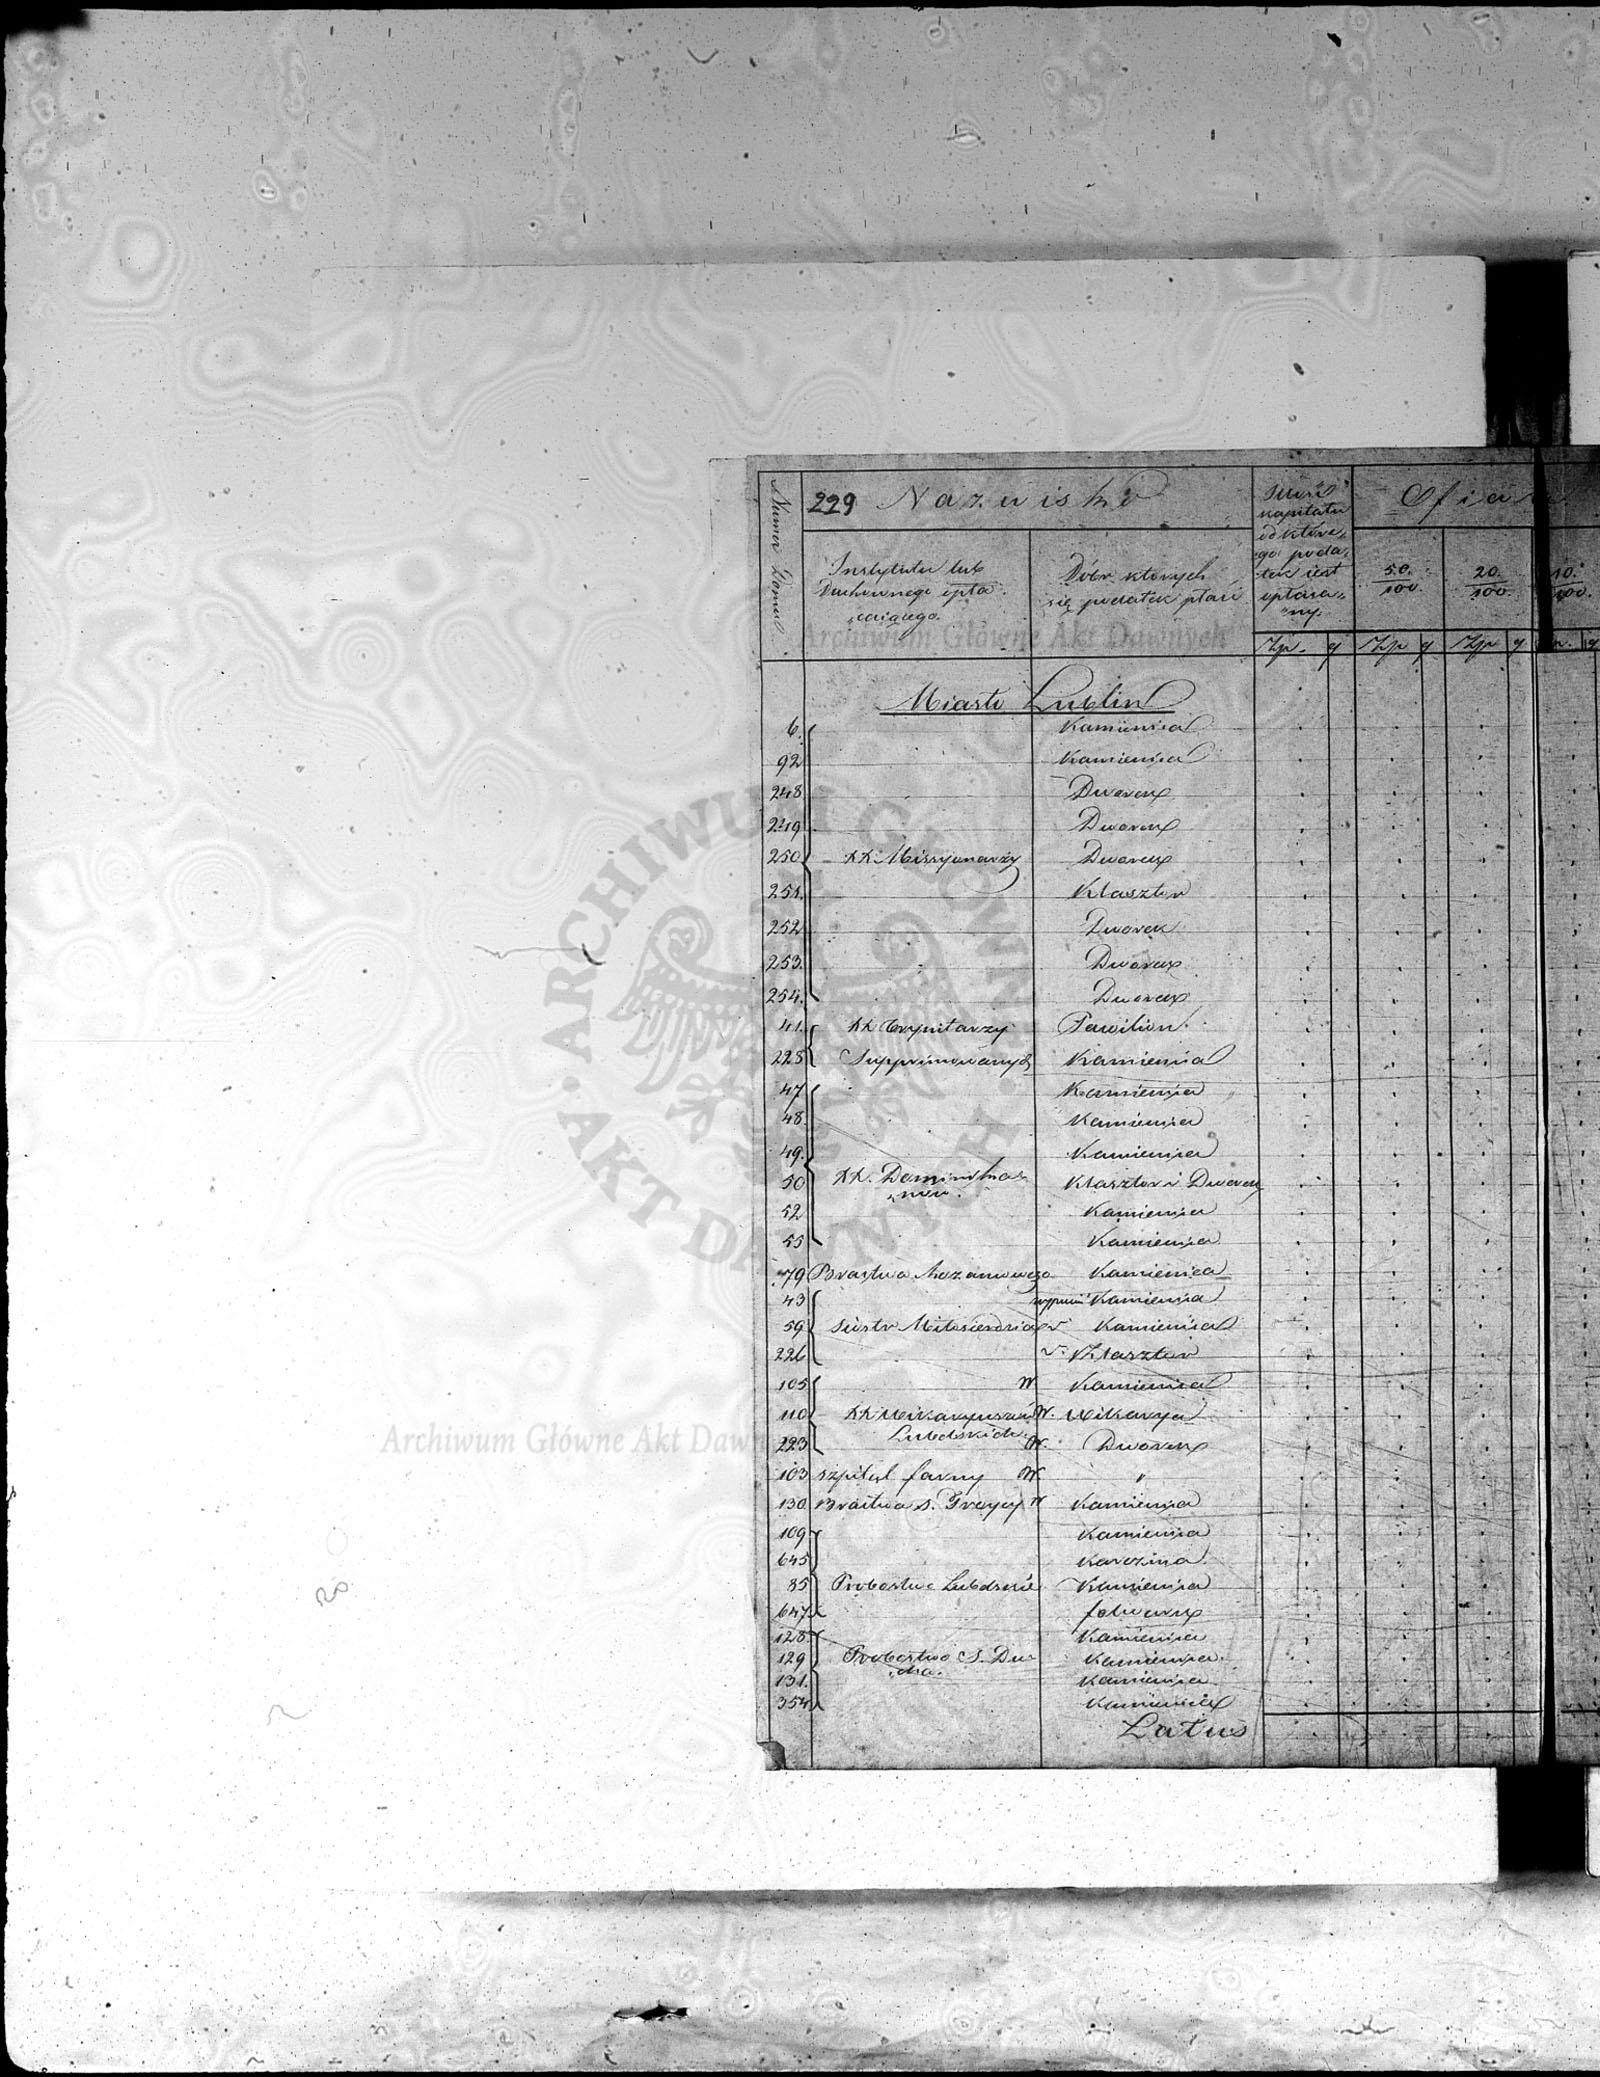 229 Nazwisko
Numer Domu
Instytutu lub
Duchownego opła
cającego.
Dóbr których
się podatek płaci
kapitału
od które
go poda
tek iest
opłaca
ny.
Ofiara
50.
100.
20.
100
10.
100.
Zp. g Zp g Zp g g
Miasto Lublin
6. Kamienica
92 Kamienica
248 Dworek
249 Dworek
250 XX. Missyonarzy Dworek
251. Klasztor
252 Dworek
253. Dworek
254. Dworek
41. XX Trynitarzy Pawilion.
228 Supprimowanych Kamienica
47 Kamienica
48 Kamienica
49. Kamienica
50 XX. Dominika Klasztor i Dworek
nów.
52 Kamienica
55 Kamienica
79 Bractwa Rozancowego Kamienica
43 Kamienica
59 Siostr Miłosierdzia Kamienica
226 Klasztor
105 W Kamienica
110 XX Wikaryuszów W. Wikarya
Lubelskich
223 W. Dworek
103 szpital farny W. "
130 Bractwa S. Troycy W Kamienica
109 Kamienica
645 Karczma
85 Probostwo Lubelskie Kamienica
647 folwark
128 Kamienica
129 Probostwo S. Du Kamienica
cha.
131. Kamienica
354 Kamienica
Latus
Archiwum Główne Akt Dawnych
ARCHIWUM GŁÓWNE AKT DAWNYCH
Archiwum Główne Akt Dawn